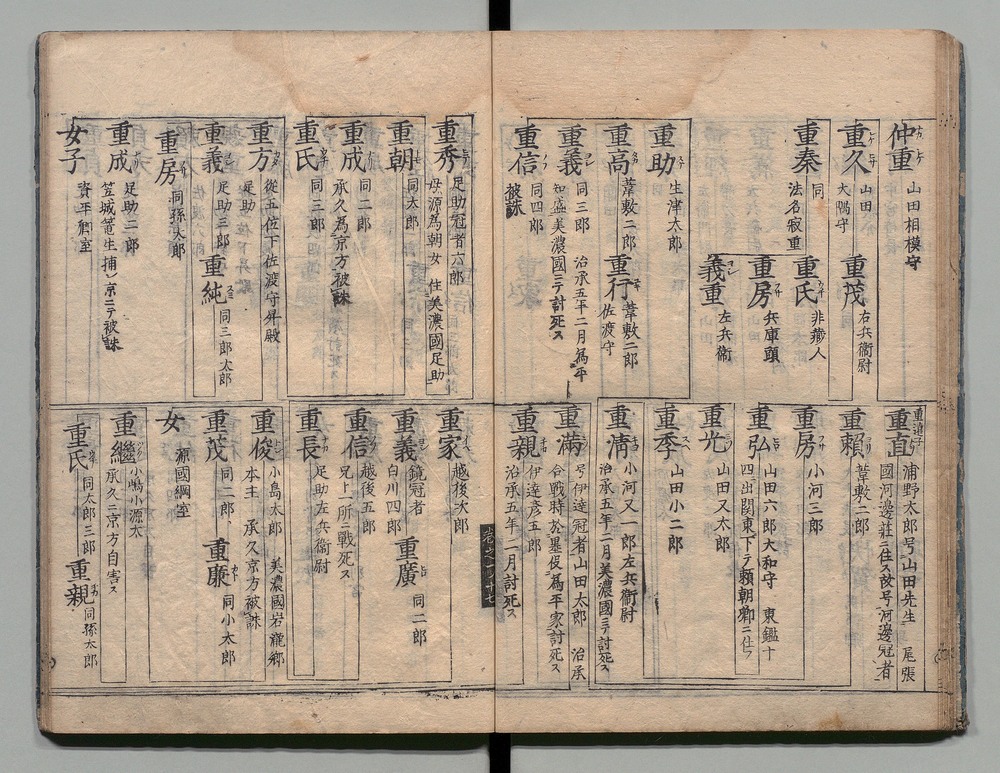 仲重
山田相模守
重久
山田
大隅守
重茂
右兵衞尉
重秦
同
法名寂重
重氏
非藏人
重房
兵庫頭
義重
左兵衞
重助
生津太郎
重高
葦敷二郎
重行
葦敷二郎
佐渡守
重義
同三郎 治承五年二月為平
知盛美濃國ニテ討死ス
重信
同四郎
被誅
重直
重遠子
浦野太郎号山田先生 尾張
國河邊莊ニ住ス故号河邊冠者
重賴
葦敷二郎
重房
小河三郎
重弘
山田六郎大和守 東鑑十
四ニ出関東下テ賴朝卿ニ仕フ
重光
山田又太郎
重季
山田小二郎
重清
小河又一郎左兵衞尉
治承五年二月美濃國ニテ討死ス
重満
号伊達冠者山田太郎 治承
合戰時於墨俣為平家討死ス
重親
伊達彦五郎
治承五年二月討死ス
重秀
足助冠者六郎
母源為朝女 住美濃國足助
重朝
同太郎
重成
同二郎
承久為京方被誅
重氏
同三郎
重方
從五位下佐渡守昇殿
足助
重義
足助三郎
重純
同三郎太郎
重房
同孫太郎
重成
足助二郎
笠城篭生捕シ京ニテ被誅
女子
資平卿室
重家
越後次郎
重義
鏡冠者
白川四郎
重廣
同二郎
重信
越後五郎
兄ト一所ニ戰死ス
重長
足助左兵衞尉
重俊
小島太郎 美濃國岩瀧郷
本主 承久京方被誅
重茂
同二郎
重廉
同小太郎
女
源國綱室
重繼
小嶋小源太
承久ニ京方自害ス
重氏
同太郎三郎
重親
同孫太郎